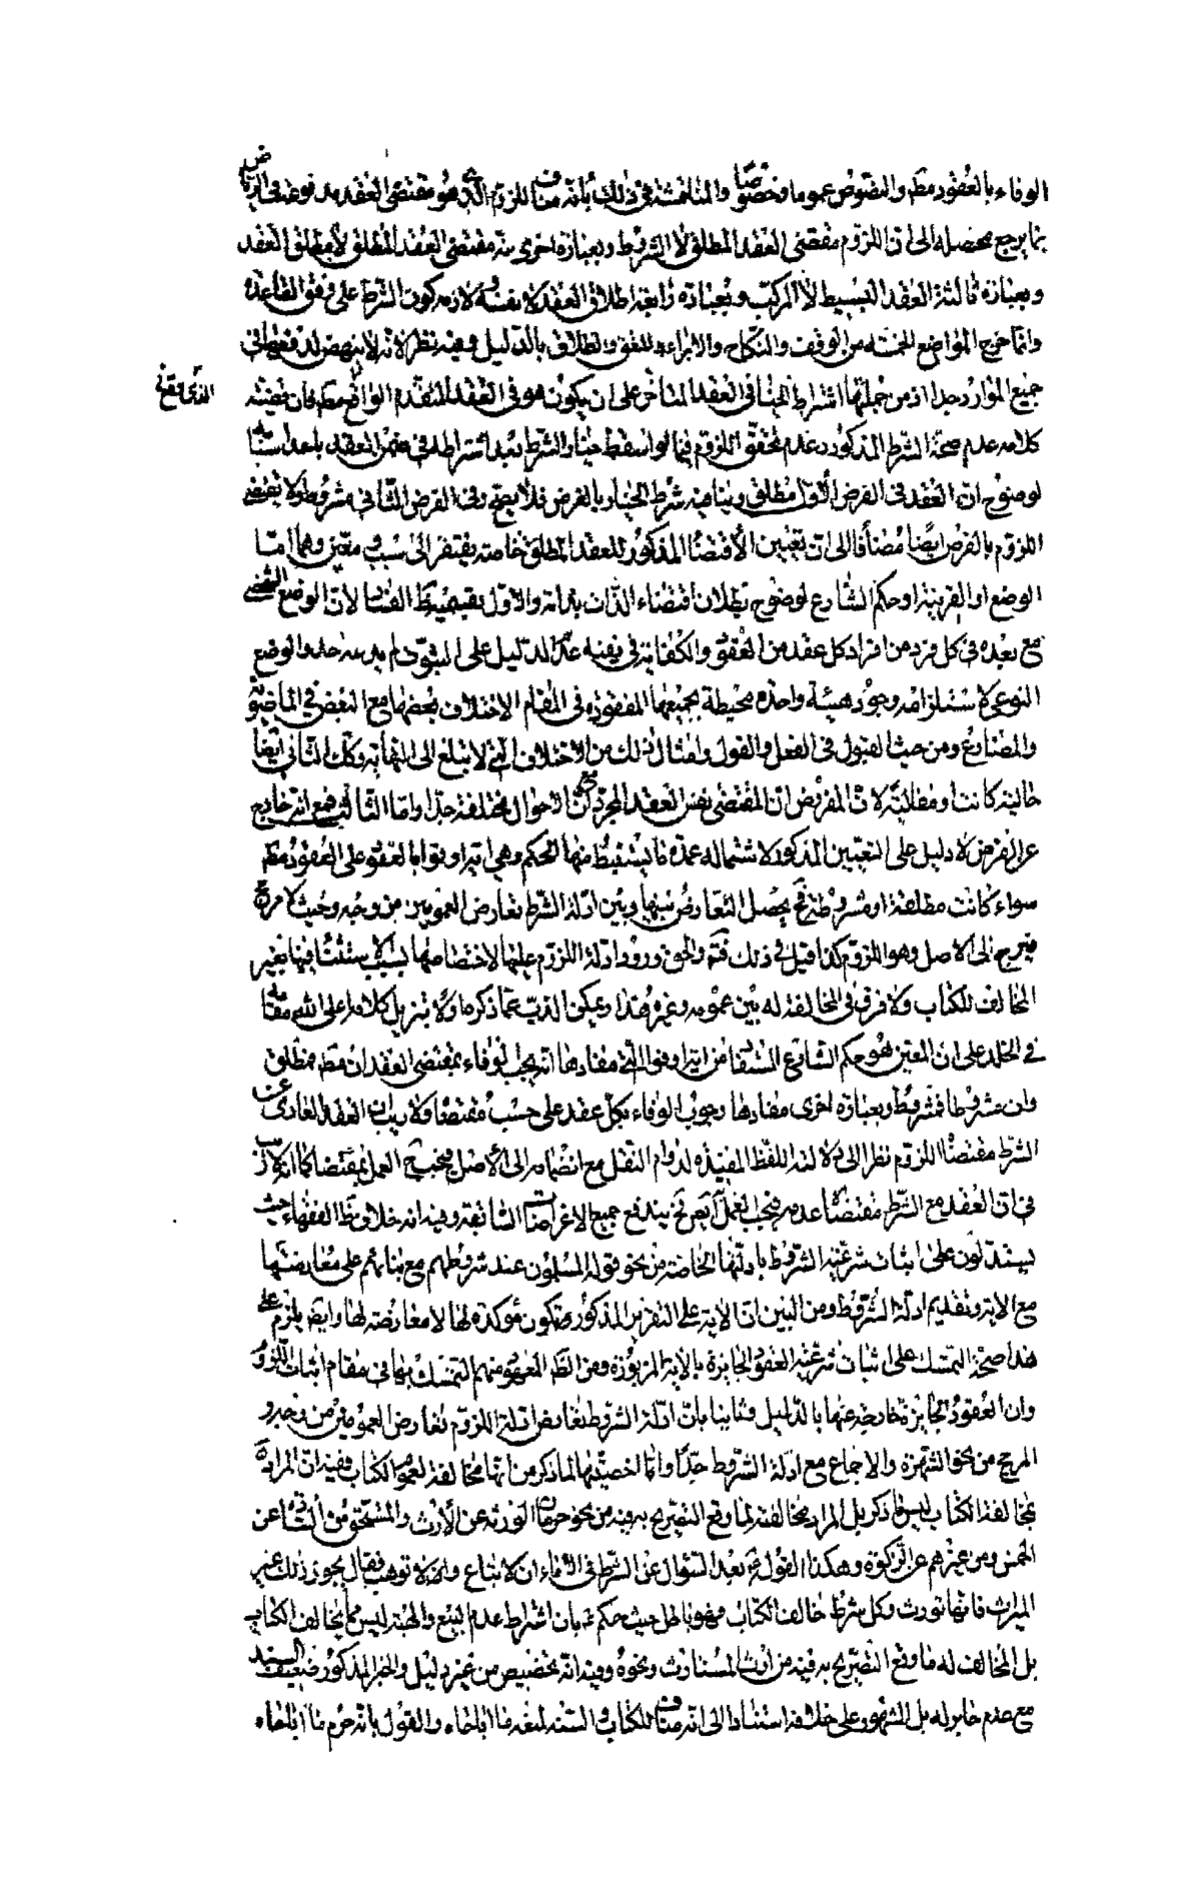 الوفاء بالعقود مط والنصوص عموما وخصوصا والمناقشة فى ذلك بانه مناف للزوم الذى هو مقتضى العقد مدفوعة فى الرياض
بما يرجع محصله الى ان اللزوم مقتضى العقد المطلق لا المشروط وبعبارة اخرى انه مقتضى العقد المطلق لا مطلق العقد
وبعبارة ثالثة العقد البسيط لا المركب وبعبارة رابعة اطلاق العقد لا نفسه ولازمه كون الشرط على وفق القاعدة
وانما خرج المواضع الخمسة من الوقف والنكاح والابراء والعتق والطلاق بالدليل وفيه نظر لانه لا ينهض لدفعها فى
جميع الموارد جدا اذ من جملتها اشتراط الخيار فى العقد المتاخر على ان يكون هو فى العقد المتقدم الواقع مط فان قضية
الذى وقع
كلامه عدم صحة الشرط المذكور وعدم تحقق اللزوم فيما لو اسقط خيار الشرط بعد اشتراطه فى ضمن العقد باحد اسبابه
لوضوح ان العقد فى الفرض الاول مطلق وينافيه شرط الخيار بالفرض فلا يصح وفى الفرض الثانى مشروط ولا يقتضى
اللزوم بالفرض ايضا مضافا الى ان تعيين الاقتضاء المذكور للعقد المطلق خاصة يفتقر الى سبب معين وهو اما
الوضع او القرينة او حكم الشارع لوضوح بطلان اقتضاء الذات بذاته والاول بقسميه ظ الفساد لان الوضع الشخصى
مع بعده فى كل فرد من افراد كل عقد من العقود والكفاية فى نفيه عدم الدليل على الثبوت لم يدعه احد والوضع
النوعى لاستلزامه وجود هيئة واحدة محيطة بجميعها المفقودة فى المقام لاختلاف بعضها مع البعض فى الماضوية
والمضارع ومن حيث القبول فى الفعل والقول وامثال ذلك من الاختلاف التى لا تبلغ الى النهاية وكك الثانى ايضا
حالية كانت او مقالية لان المفروض ان المقتضى نفس العقد المجرد مع ان الاحوال مختلفة جدا واما الثالث فمع انه خارج
عن الفرض لا دليل على التعيين المذكور لاشتماله عمدة ما يستنبط منها الحكم وهى اية اوفوا بالعقود على العقود مط
سواء كانت مطلقة او مشروطة فح يحصل التعارض بينها وبين ادلة الشرط تعارض العمومين من وجه وحيث لا مرجح
فيرجع الى الاصل وهو اللزوم كذا قيل فى ذلك فته والحق ورود ادلة اللزوم عليها لاختصاصها بسبب الاستثناء فيها بغير
المخالف للكتاب ولا فرق فى المخالفة له بين عمومه وغيره هذا ويمكن الذب عما ذكره اولا بتنزيل كلامه على الله مقامه
فى الخلد على ان المعين هو حكم الشارع المستفاد من اية اوفوا التى مفادها انه يجب الوفاء بمقتضى العقد ان مط فمطلق
وان مشروطا فمشروط وبعبارة اخرى مفادها وجوب الوفاء بكل عقد على حسب مقتضاه ولا ريب ان العقد العارى عن
الشرط مقتضاه اللزوم نظرا الى دلالة اللفظ المفيدة لدوام النقل مع انضمامه الى الاصل فيجب ح العمل بمقتضاه كما انه لا ريب
فى ان العقد مع الشرط مقتضاه عدمه فيجب العمل ايض فح يندفع جميع الاعتراضات السابقة وفيه انه خلاف ظ الفقهاء حيث
يستدلون على اثبات شرعية الشروط بادلتها الخاصة من نحو قوله المسلمون عند شروطهم مع بنائهم على معارضتها
مع الاية وتقديم ادلة الشروط ومن البين ان الاية على التقرير المذكور وتكون مؤكدة لها لا معارضة لها وايض يلزم على
هذا صحة التمسك على اثبات شرعية العقود الجائزة بالاية المزبورة ومن الظ المعهود منهم التمسك بها فى مقام اثبات اللزوم
وان العقود الجائزة خارجة عنها بالدليل وثانيا بان ادلة الشروط تعارض ادلة اللزوم تعارض العمومين من وجه و
المرجح من نحو الشهرة والاجماع مع ادلة الشروط جدا واما اخصيتها لما ذكر من انها مخالفة لعموم الكتاب ففيه ان المراد
بمخالفة الكتاب ليس ما ذكر بل المراد مخالفته لما وقع التصريح به فيه من نحو حرمان الورثة عن الارث والمستحق من السادات عن
الخمس ومن غيرهم عن الزكوة وهكذا القوله ع بعد السؤال عن الشرط فى الاماء ان لا تباع ولا توهب فقال يجوز ذلك غير
الميراث فانها تورث وكل شرط خالف الكتاب فهو باطل حيث حكم ع بان اشتراط عدم البيع والهبة ليس مما يخالف الكتاب
بل المخالف له ما وقع التصريح به فيه من ارث المستارث ونحوه وفيه انه تخصيص من غير دليل والخبر المذكور ضعيف السند
مع عدم جابر له بل المشهور على خلافه استنادا الى انه مناف للكتاب والسنة لمنعه ما اباحاه والقول بانه حرم ما اباحاه